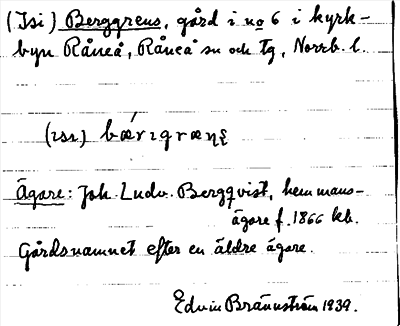 (Isi) Berggrens, gård i no 6 i kyrk-
byn Råneå, Råneå sn och tg, Norrb. l.
(ɪsɪ)
Ägare: Joh. Ludv. Bergqvist, hemmans-
ägare f. 1866 kb.
Gårdsnamnet efter en äldre ägare.
Edvin Brännström 1939.